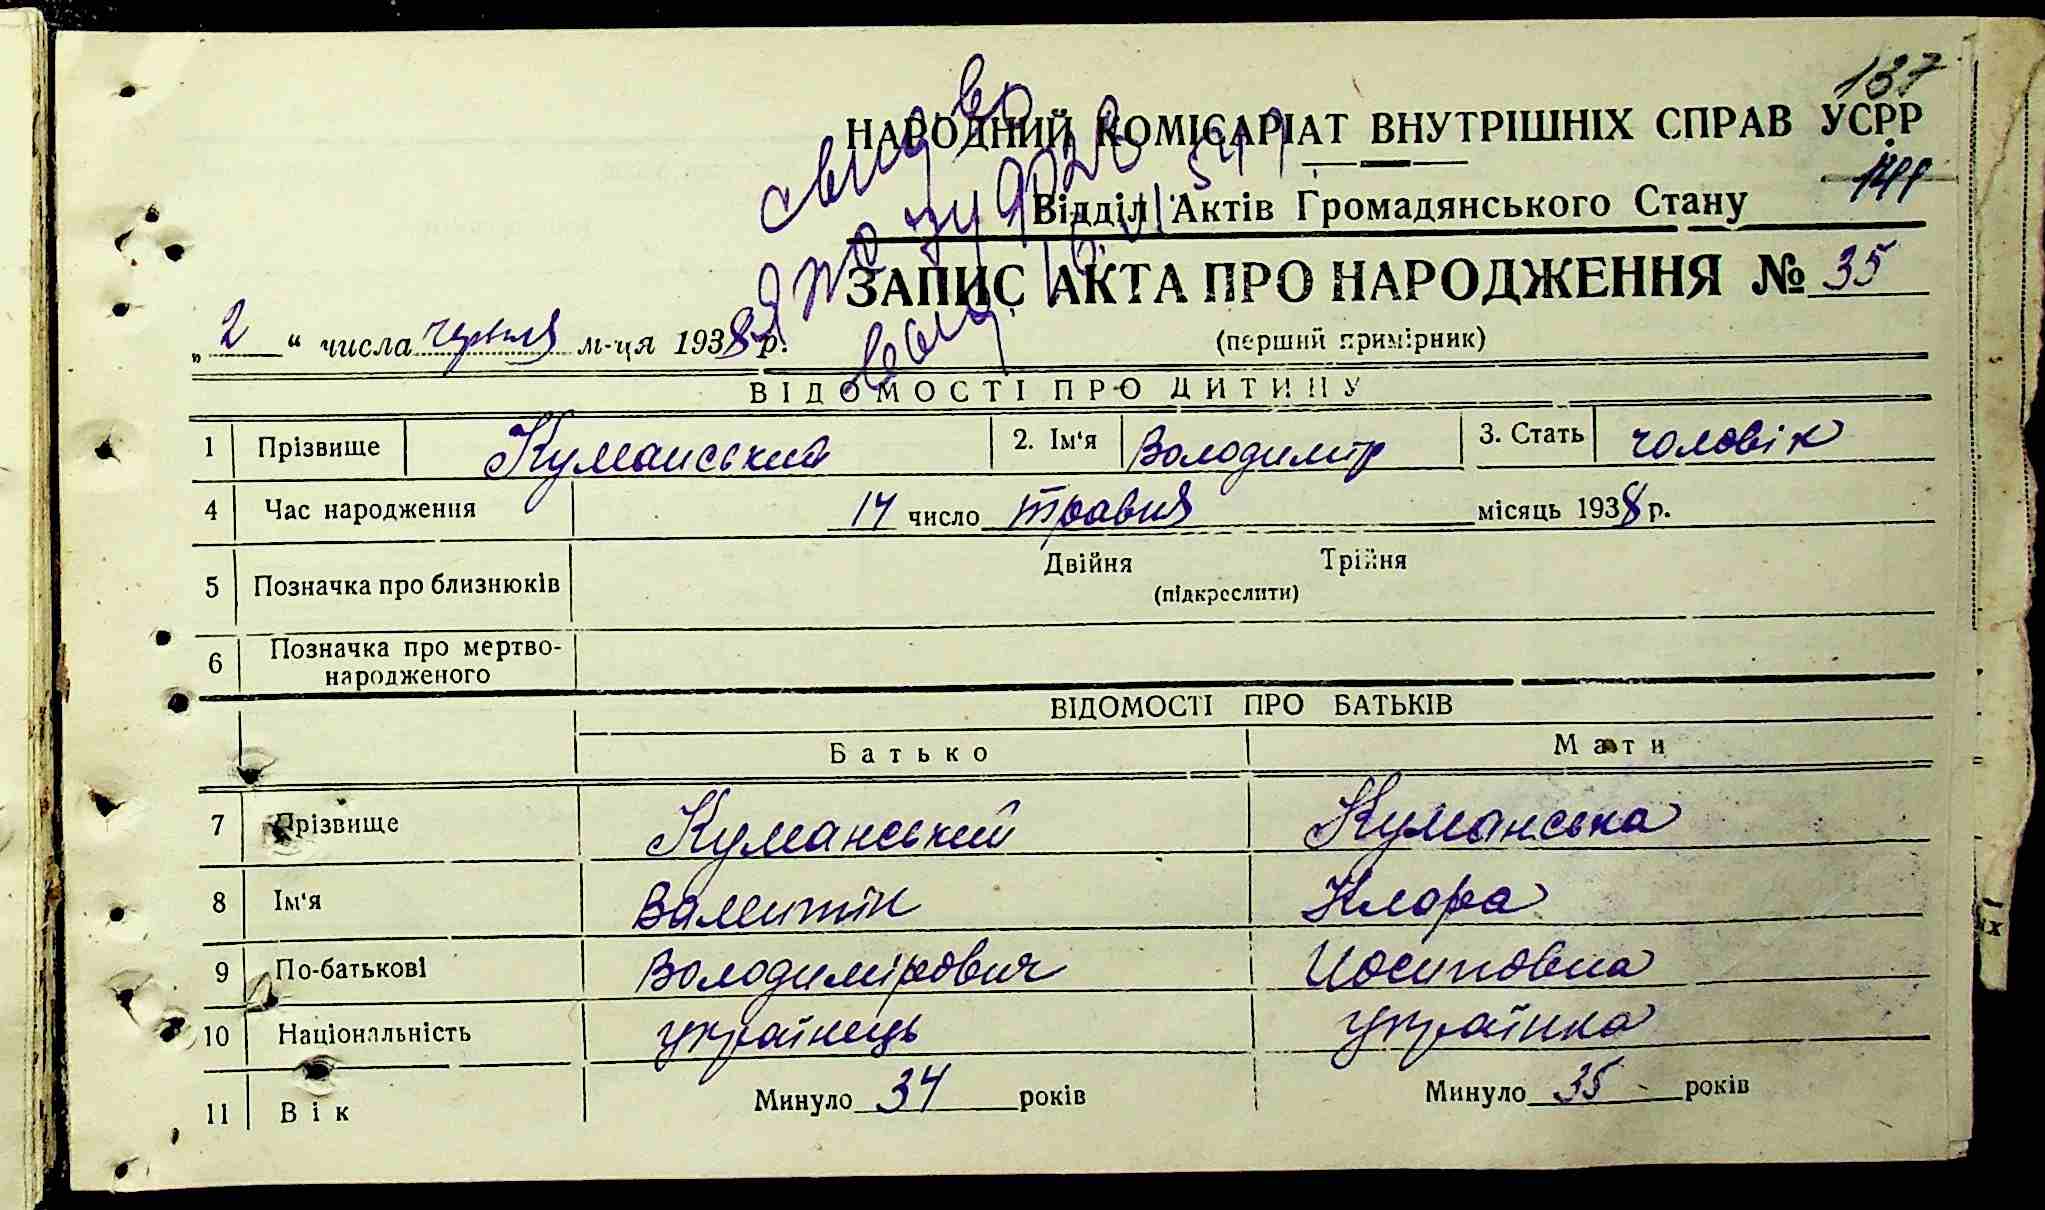 137
НАРОДНИЙ КОМІСАРІАТ ВНУТРІШНІХ СПРАВ УСРР
Відділ Актів Громадянського Стану
ЗАПИС АКТА ПРО НАРОДЖЕННЯ № 35
„ 2 “ числа червня м-ця 1938 р.
(перший примірник)
ВІДОМОСТІ ПРО ДИТИНУ
1 Прізвище Куманський 2. Ім'я Володимир 3. Стать чоловік
4 Час народження 14 число травня місяць 1938 р.
5 Позначка про близнюків Двійня Трійня
(підкреслити)
6 Позначка про мертво-
народженого
ВІДОМОСТІ ПРО БАТЬКІВ
Батько Мати
7 Прізвище Куманський Куманська
8 Ім'я Валентін Клора
9 По-батькові Володимірович Иосиповна
10 Національність українець українка
11 Вік Минуло 34 років Минуло 35 років